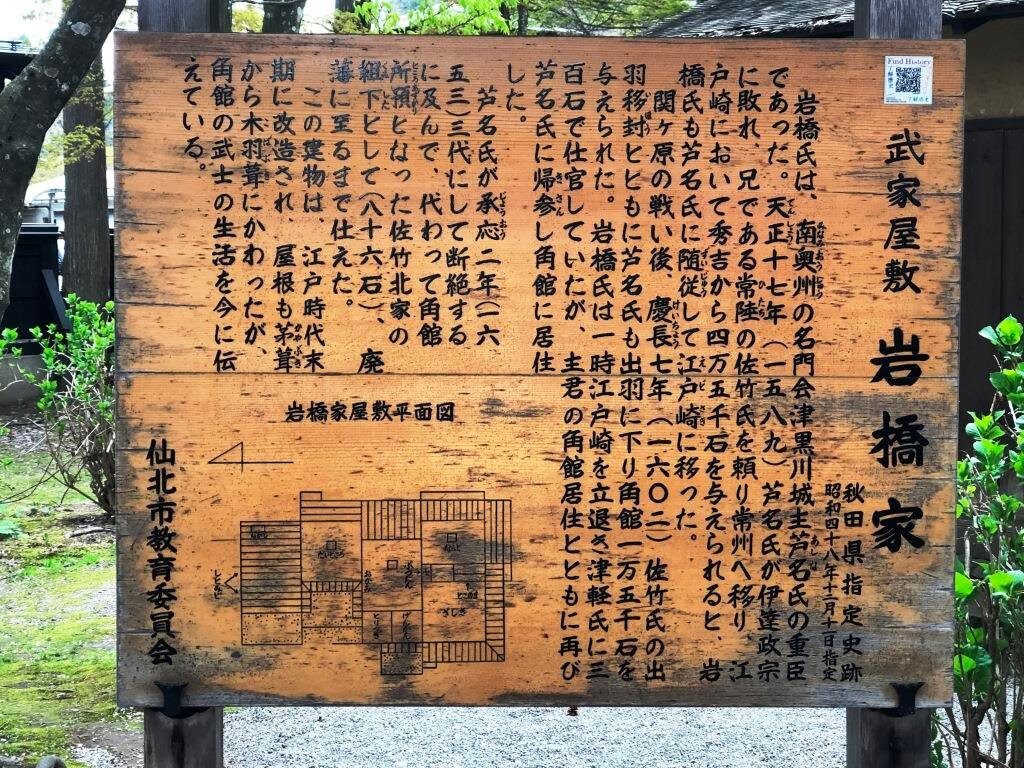 Find History
了解歴史
了解历史
武家屋敷 岩橋家
秋田県指定史跡
昭和四十八年十二月十日指定
岩橋氏は、南奥州の名門会津黒川城主芦名氏の重臣
であった。天正十七年（一五八九）芦名氏が伊達政宗
に敗れ、兄である常陸の佐竹氏を頼り常州へ移り、江
戸崎において秀吉から四万五千石を与えられると、岩
橋氏も芦名氏に随従して江戸崎に移った。
関ヶ原の戦い後、慶長七年（一六〇二）佐竹氏の出
羽移封とともに芦名氏も出羽に下り角館一万五千石を
与えられた。岩橋氏は一時江戸崎を立退き津軽氏に三
百石で仕官していたが、主君の角館居住とともに再び
芦名氏に帰参し角館に居住
した。
芦名氏が承応二年（一六
五三）三代にして断絶する
に及んで、代わって角館
所預となった佐竹北家の
組下として（八十六石）、廃
藩に至るまで仕えた。
この建物は、江戸時代末
期に改造され、屋根も茅葺
から木羽葺にかわったが、
角館の武士の生活を今に伝
えている。
岩橋家屋敷平面図
だいどころ
おなんど
ざしき
げんかん
仙北市教育委員会